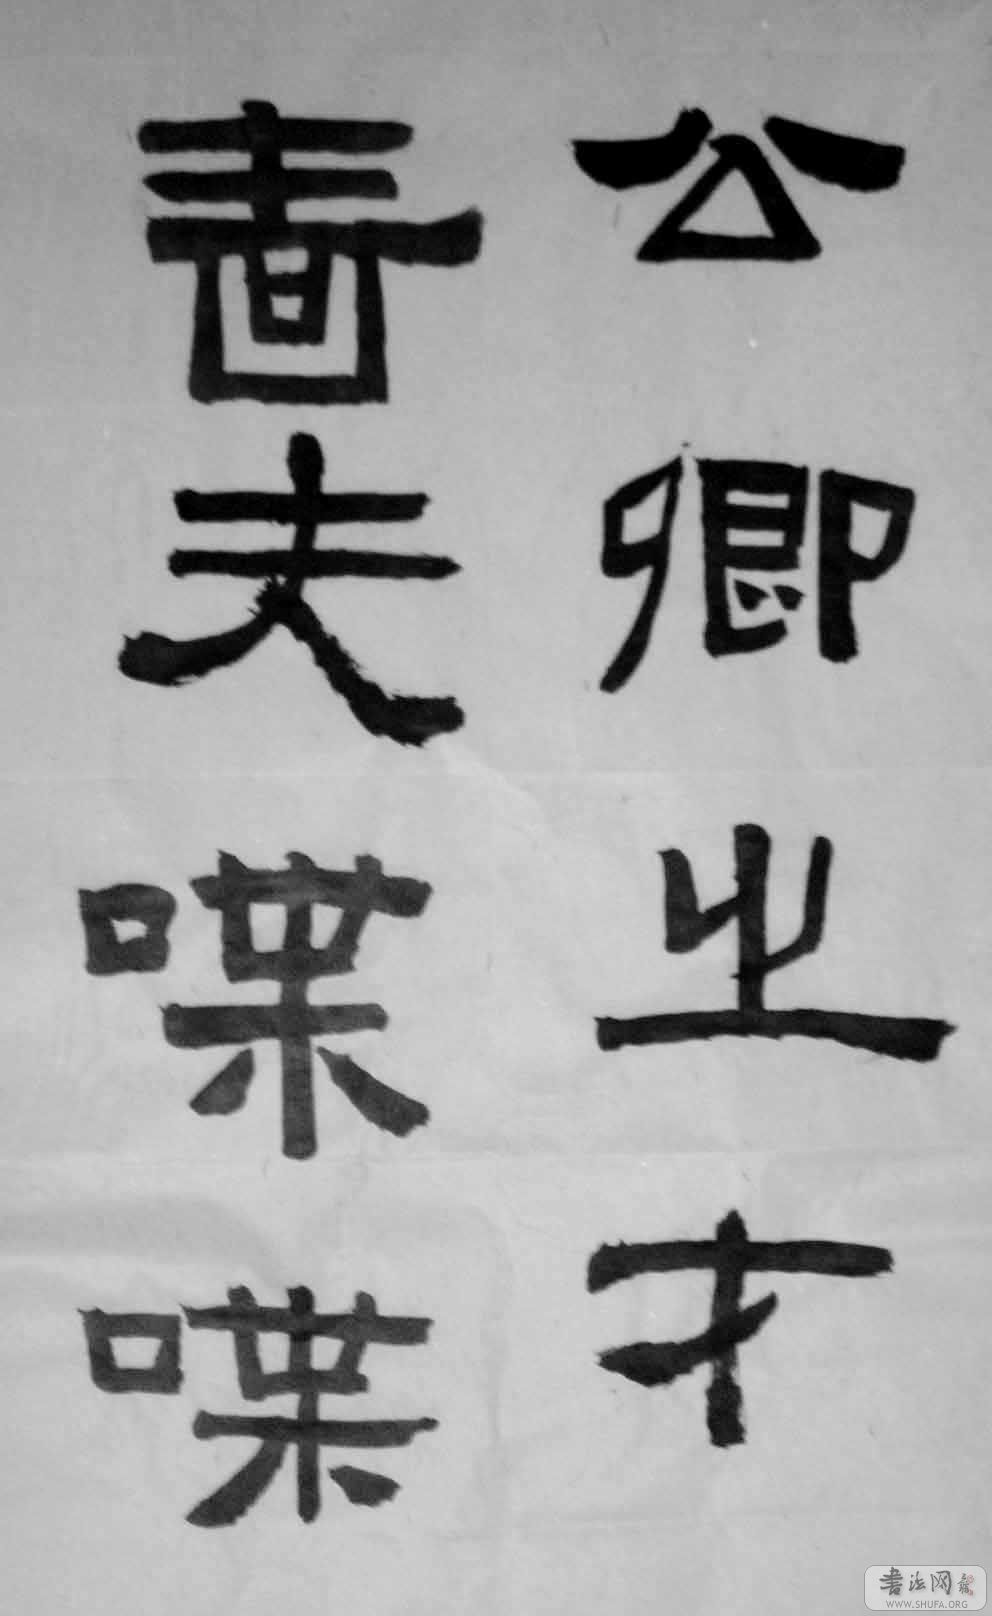 公卿之才
啬夫喋喋
书法网
WWW.SHUFA.ORG